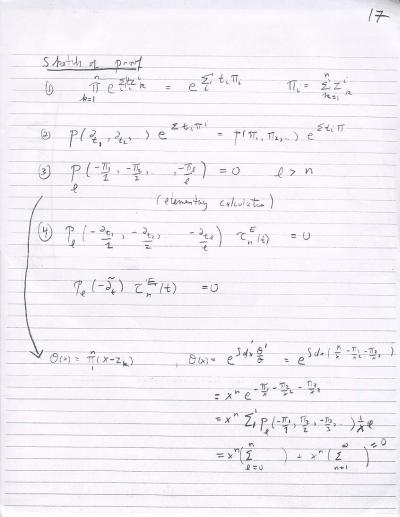 17
Sketch of proof
① ∏_{k=1}^{n} e^{Σ t_i z_k^i} = e^{Σ_i t_i π_i}    π_i = Σ_{k=1}^{n} z_k^i
② P(∂_{t_1}, ∂_{t_2}, ..) e^{Σ t_i π_i} = P(π_1, π_2, ..) e^{Σ t_i π}
③ P_ℓ(-π_1/1, -π_2/2, , -π_ℓ/ℓ) = 0   ℓ > n
(elementary calculation)
④ P_ℓ(-∂_{t_1}/1, -∂_{t_2}/2, -∂_{t_ℓ}/ℓ) τ_n^E(t) = 0
P_ℓ(-∂̃_t) τ_n^E(t) = 0
θ(x) = ∏_1^n (x-z_k) , θ(x) = e^{∫dx θ'/θ} = e^{∫dx(n/x - π_1/x² - π_2/x³)}
= x^n e^{-π_1/x - π_2/2x² - π_3/3x³}
= x^n Σ P_ℓ(-π_1/1, -π_2/2, -π_3/3, ..) 1/x^ℓ
= x^n (Σ_{ℓ=0}^{n} ) + x^n (Σ_{n+1}^{∞} ) = 0